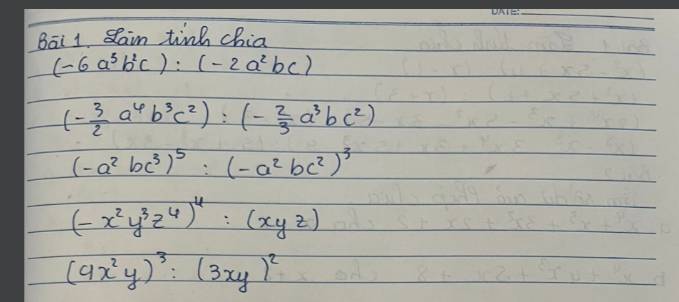 DATE:
Bài 1. Làm tính chia
(-6 a³b²c) : (-2a²bc)
(-3/2 a⁴b³c²) : (-2/3 a³bc²)
(-a²bc³)⁵ : (-a²bc²)³
(-x²y³z⁴)⁴ : (xyz)
(9x²y)³ : (3xy)²